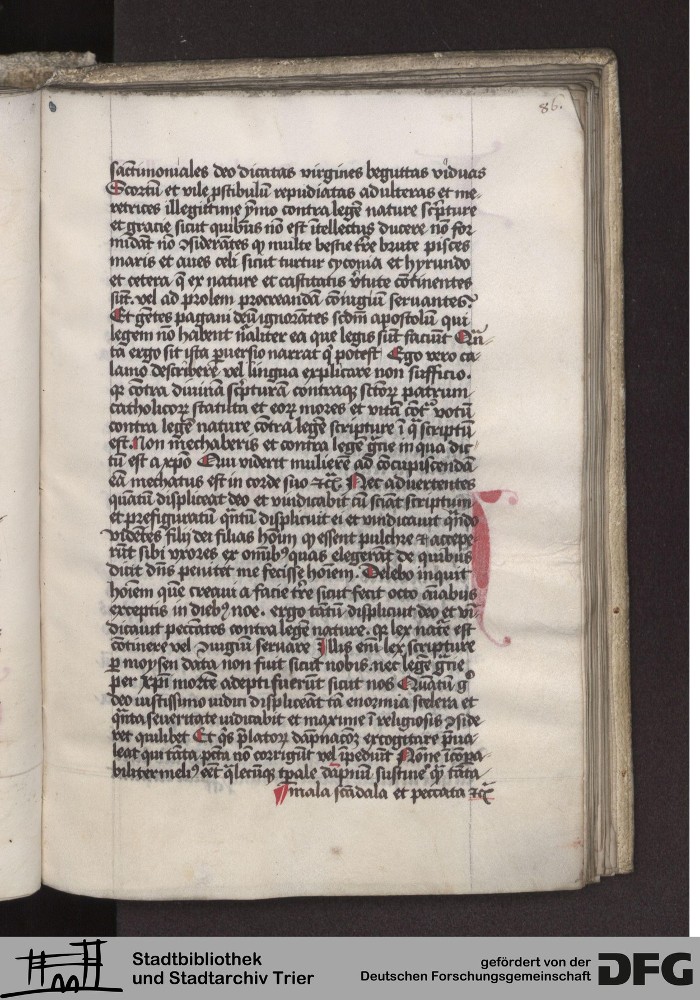 86.
sāctimoniales deo dicatas virgines beguttas viduas
Scortū et vile ꝓstibulū repudiatas adulteras et me-
retrices illegittime ymo contra legē nature sc̄pture
et gracie sicut quibus nō est ītellectus ducere nō for
midāt nō ↄsiderātes ꝙ multe bestie tr̄e brute pisces
maris et aues celi sicut turtur cyconia et hyrundo
et cetera q̄ ex nature et castitatis v̄tute cōtinentes
sūt. vel ad prolem procreandā coniugiū seruantes.
Et gētes pagani deū ignorātes scdm̄ apostolum qui
legem nō habent nāliter ea que legis sūt faciūt Quā
ta ergo sit ista ꝑuersio narrat qͥ potest Ego vero ca-
lamo describere vel lingua explicare non sufficio.
qꝛ cōtra diuinā scͥpturam contraqꝫ sctoꝝ patrum
catholicoꝝ statuta et eoꝝ mores et vitā votū
contra legē nature cōtra legē scripture ī q̄ scriptū
est. Non mechaberis et contra legē gr̄e in qua dic-
tū est a xp̄o Qui viderit mulierē ad cōcupiscendā
eā mechatus est in corde suo ⁊cꝫ Nec aduertentes
quātū displiceat deo et vindicabit cū sciāt scriptum
et prefiguratū qn̄tū displicuit ei et vindicauit qn̄do
videtes filij dei filias hoīm ꝙ essent pulchre ⁊ accepe
rūt sibi vxores ex omībꝰ quas elegerāt de quibus
dicit dn̄s penitet me fecisse hoīem. Delebo inquit
hoīem quē creaui a facie tr̄e sicut fecit octo aīabus
exceptis in diebꝰ noe. ergo tātū displicuit deo et vi-
dicauit peccātes contra legē nature. qꝛ lex natē est
cōtinere vel ↄiugiū seruare Illis enī lex scripture
ꝑ moysen data non fuit sicut nobis. nec legē gr̄e
per xp̄i mortē adepti fuerūt sicut nos Quātū gͦ
deo iustissimo iudici displiceāt tā enormia scelera et
quāta seueritate vidicabit et maxime ī religiosis ↄside
ret quilibet Et qͥs p̄latoꝝ dāpnacōꝫ excogitare p̄ua-
leat qui tāta pctā nō corrigūt vel īpediūt Nōne īcōpa-
biliter meliꝰ eēt q̄lecūqꝫ tꝑale dāpnū sustine qͣꝫ tāta
mala scādala et peccata ⁊cꝫ
Stadtbibliothek
und Stadtarchiv Trier
gefördert von der
Deutschen Forschungsgemeinschaft
DFG